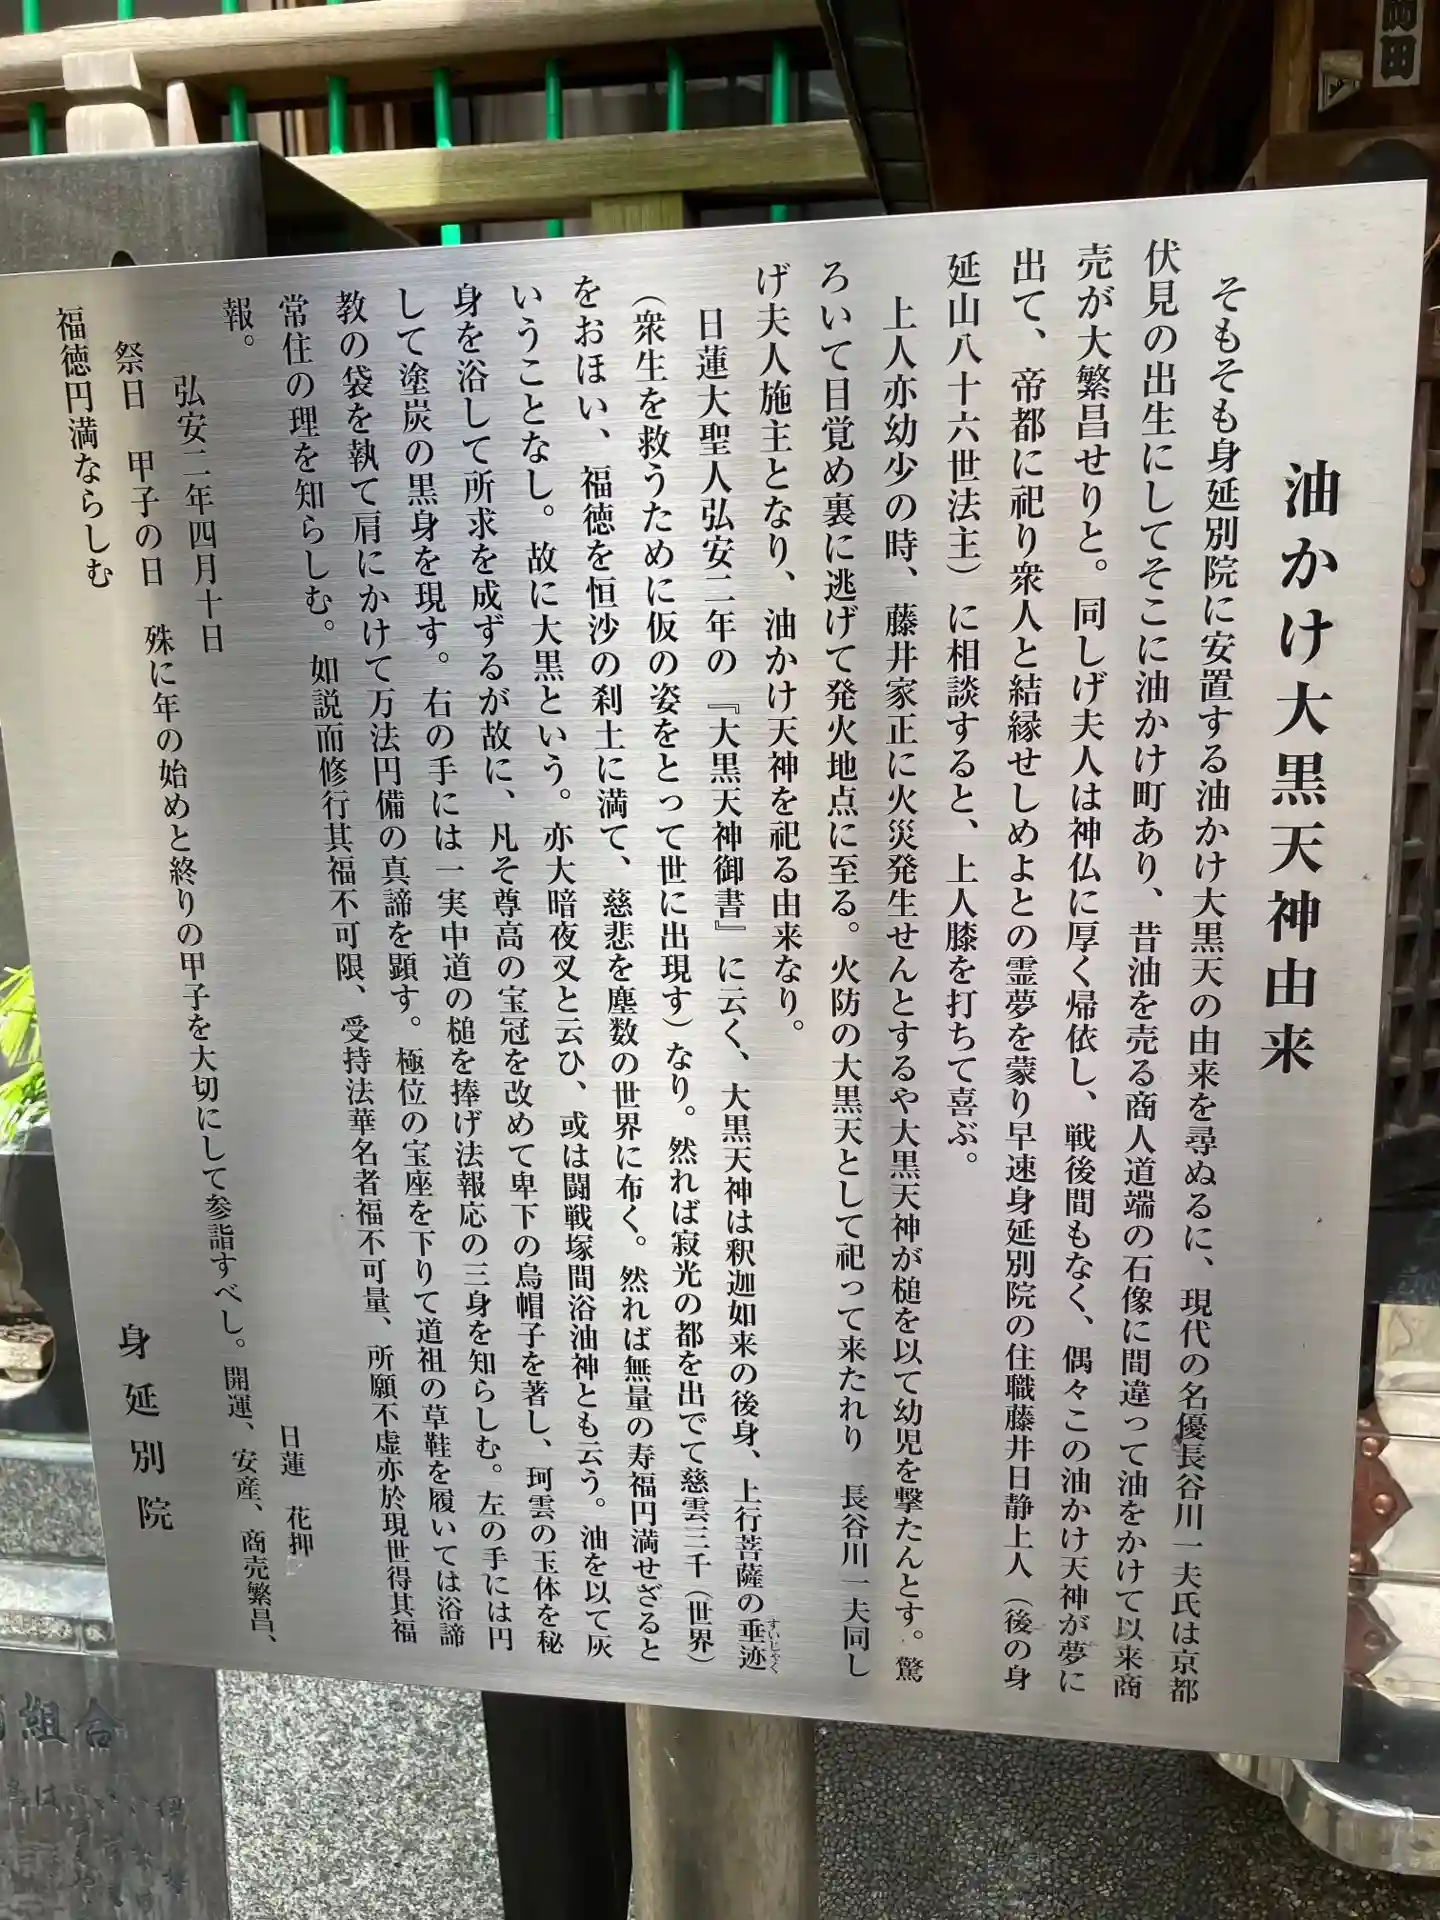 油かけ大黒天神由来
そもそも身延別院に安置する油かけ大黒天の由来を尋ぬるに、現代の名優長谷川一夫氏は京都
伏見の出生にしてそこに油かけ町あり、昔油を売る商人道端の石像に間違って油をかけて以来商
売が大繁昌せりと。同しげ夫人は神仏に厚く帰依し、戦後間もなく、偶々この油かけ天神が夢に
出て、帝都に祀り衆人と結縁せしめよとの霊夢を蒙り早速身延別院の住職藤井日静上人（後の身
延山八十六世法主）に相談すると、上人膝を打ちて喜ぶ。
上人亦幼少の時、藤井家正に火災発生せんとするや大黒天神が槌を以て幼児を撃たんとす。驚
ろいて目覚め裏に逃げて発火地点に至る。火防の大黒天として祀って来たれり　長谷川一夫同し
げ夫人施主となり、油かけ天神を祀る由来なり。
日蓮大聖人弘安二年の『大黒天神御書』に云く、大黒天神は釈迦如来の後身、上行菩薩の垂迹
すいじゃく
（衆生を救うために仮の姿をとって世に出現す）なり。然れば寂光の都を出でて慈雲三千（世界）
をおほい、福徳を恒沙の刹土に満て、慈悲を塵数の世界に布く。然れば無量の寿福円満せざると
いうことなし。故に大黒という。亦大暗夜叉と云ひ、或は闘戦塚間浴油神とも云う。油を以て灰
身を浴して所求を成ずるが故に、凡そ尊高の宝冠を改めて卑下の烏帽子を著し、珂雲の玉体を秘
して塗炭の黒身を現す。右の手には一実中道の槌を捧げ法報応の三身を知らしむ。左の手には円
教の袋を執て肩にかけて万法円備の真諦を顕す。極位の宝座を下りて道祖の草鞋を履いては浴諦
常住の理を知らしむ。如説而修行其福不可限、受持法華名者福不可量、所願不虚亦於現世得其福
報。
日蓮　花押
弘安二年四月十日
祭日　甲子の日　殊に年の始めと終りの甲子を大切にして参詣すべし。開運、安産、商売繁昌、
福徳円満ならしむ
身延別院
組合